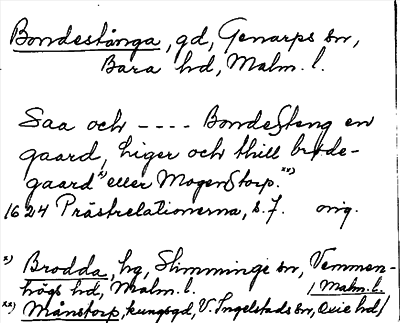 Bondestånga, gd, Genarps sn,
Bara hd, Malm. l.
Saa och ---- BondeSteng en
gaard, liger och thill brude-
gaard x) eller MogenStorp. xx)
1624 Prästrelationerna, s. 7. orig.
x) Brodda, hg, Slimminge sn, Vemmen-
högs hd, Malm. l. / Malm. l.
xx) Månstorp, kungsgd, V. Ingelstads sn, Oxie hd/